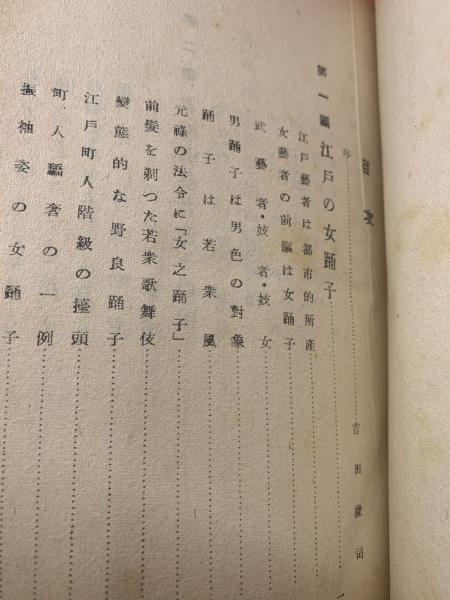 目次
序 吉田
第一編 江戸の女踊子
江戸藝者は都市的所産
女藝者の前驅は女踊子
武藝者・妓者・妓女
男踊子は男色の對象
踊子は若衆風
元祿の法令に「女之踊子」
前髪を剃つた若衆歌舞伎
變態的な野良踊子
江戸町人階級の擡頭
町人驕奢の一例
振袖姿の女踊子